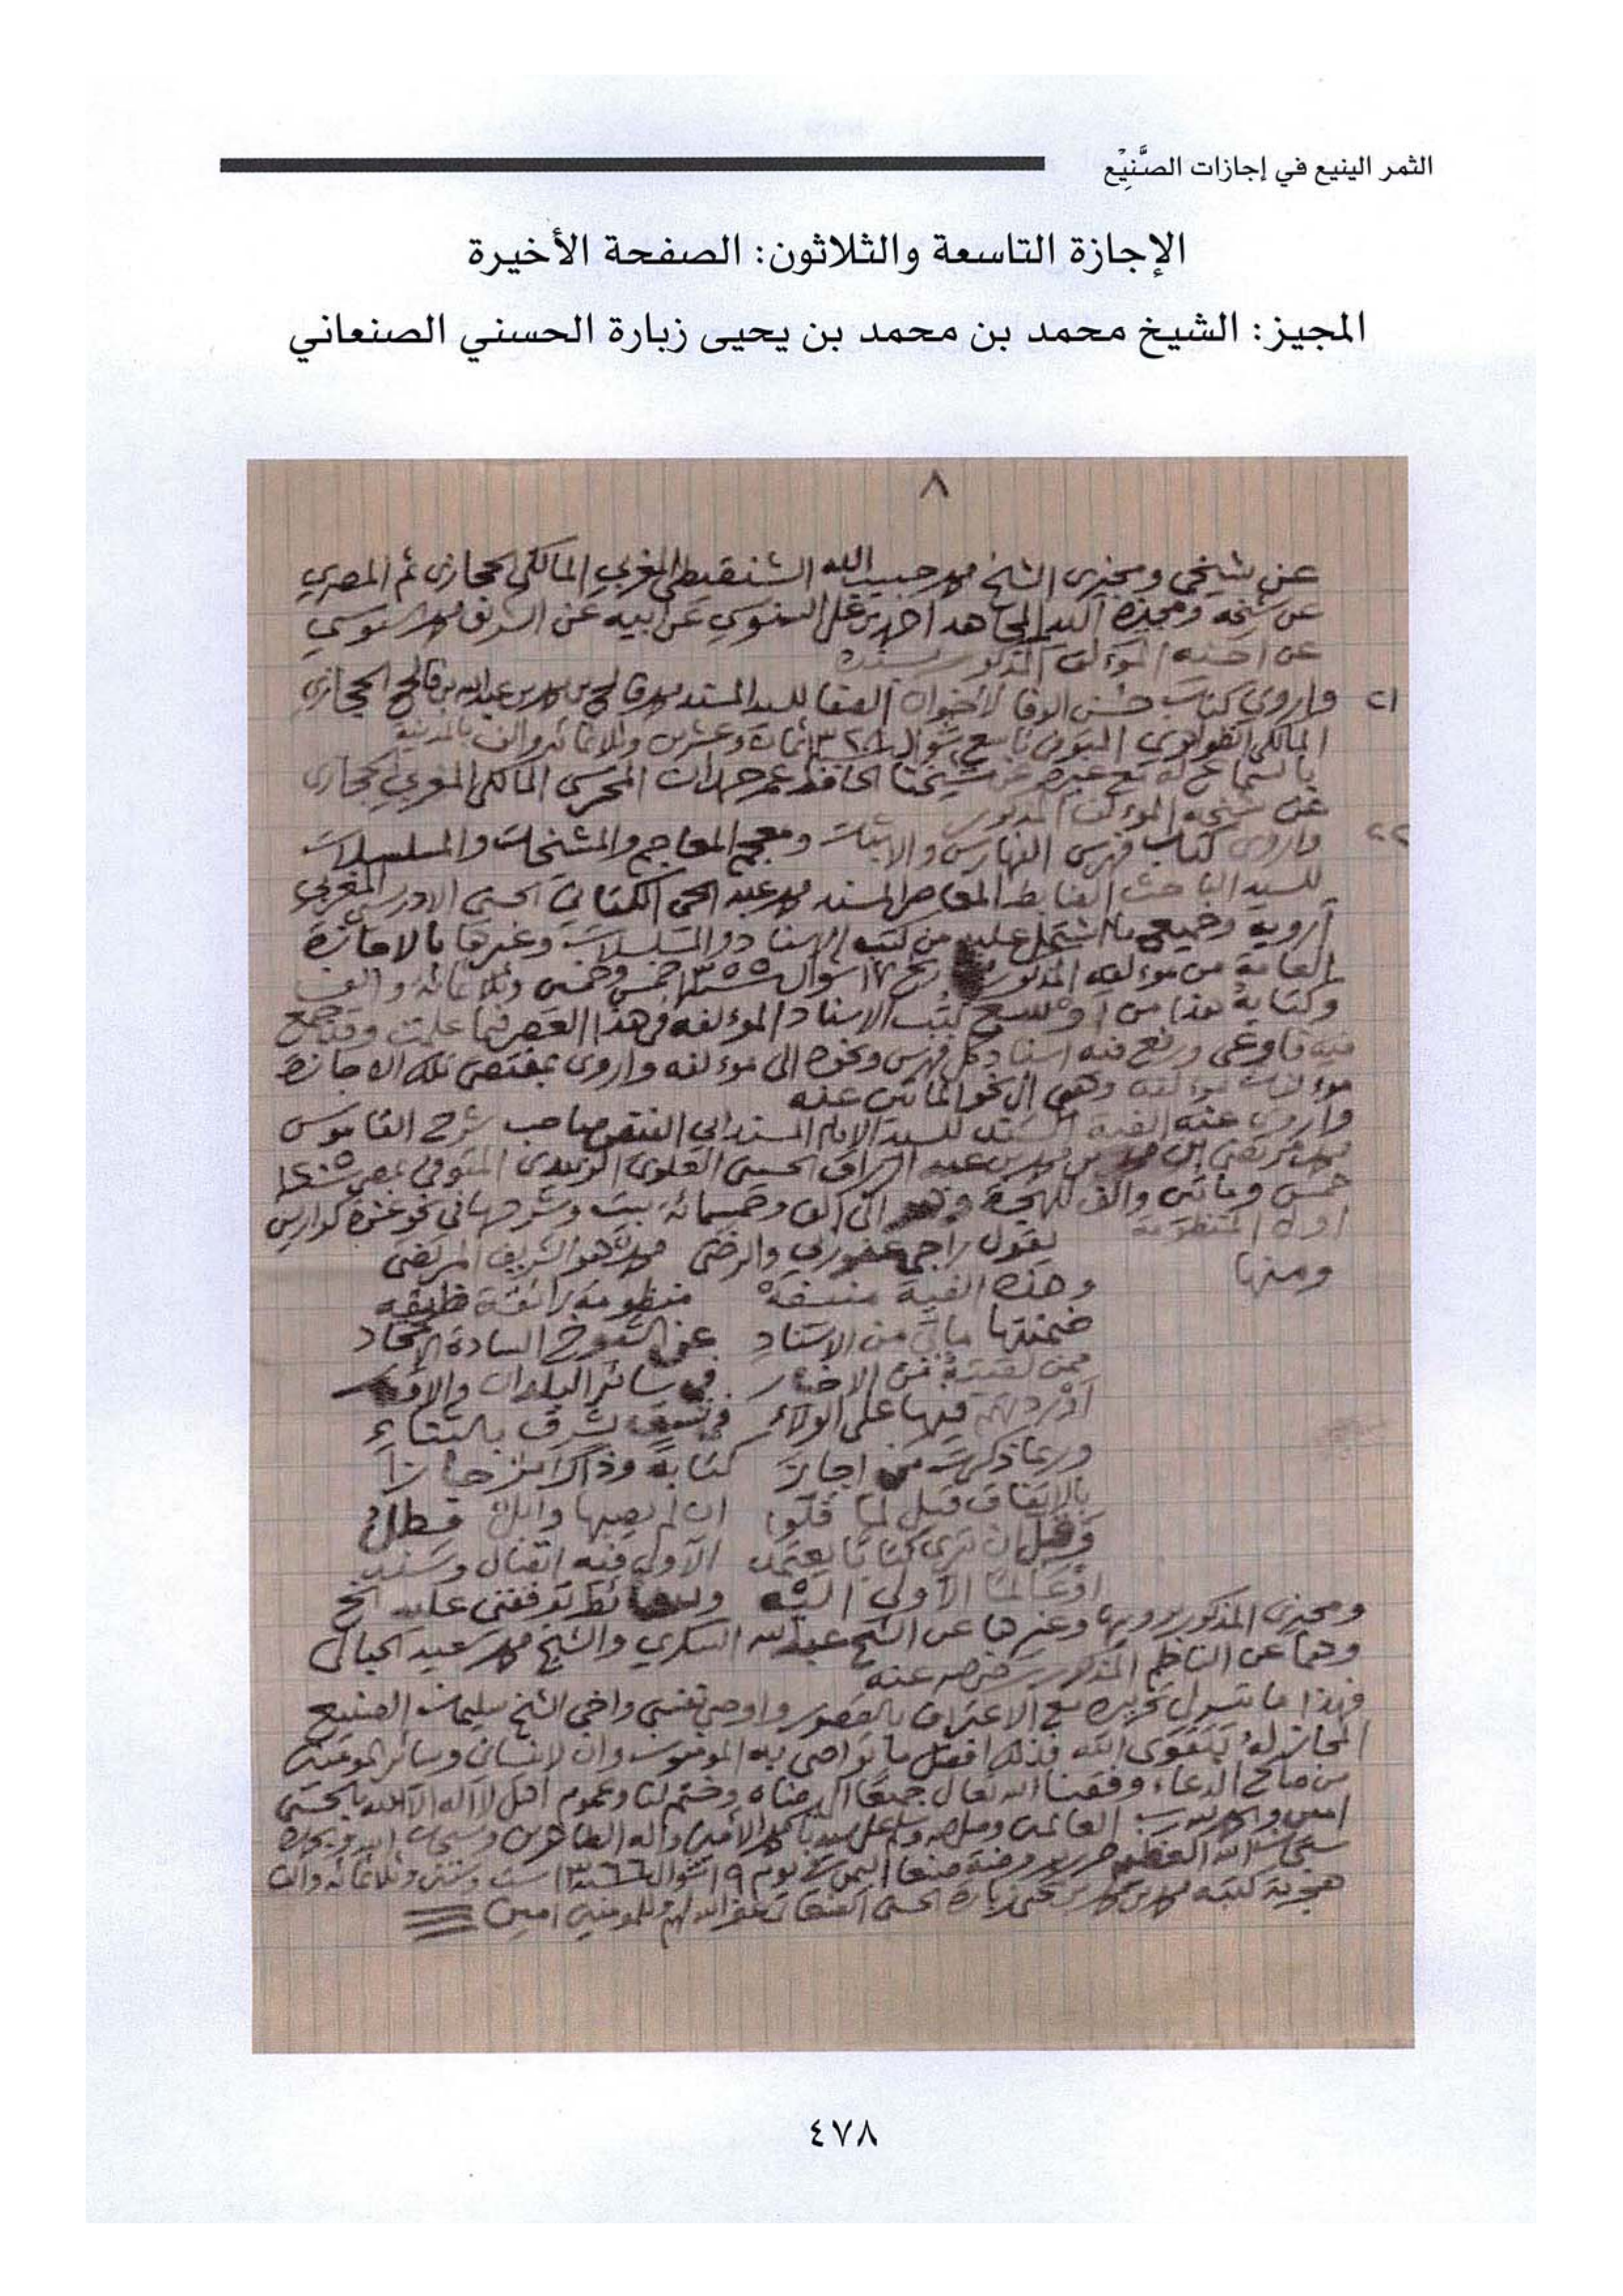 الثمر الينيع في إجازات الصَّنِيْع
الإجازة التاسعة والثلاثون: الصفحة الأخيرة
المجيز: الشيخ محمد بن محمد بن يحيى زبارة الحسني الصنعاني
٨
عن شيخي ومجيزى الشيخ محمد حبيب الله الشنقيطي المغربي المالكي الحجازي ثم المصري
عن شيخه ومجيزه السيد المجاهد احمد بن علي السنوسي عن ابيه عن الشريف محمد السنوسي
عن المؤلف المذكور بسنده
٢١ واروي كتاب حسن الوفا لاخوان الصفا للسيد المسند محمد فالح بن محمد بن عبد الله بن فالح الحجازي
المالكي الظواهري المتوفى تاسع شوال ١٣٢٨ ثمان وعشرين وثلاثمائة والف بالمدينة
بالسماع له مع غيره من شيخنا الحافظ عمر حمدان المحرسي المالكي المغربي الحجازي
عن شيخه المؤلف المذكور
٢٢ واروى كتاب فهرس الفهارس والاثبات ومعجم المعاجم والمشيخات والمسلسلات
للسيد الباحث المعاصر المسند محمد عبد الحي الكتاني الحسني الادريسي المغربي
أرويه وجميع ما اشتمل عليه من كتب الاسناد والمسلسلات وغيرها بالاجازة
العامة من مؤلفه المذكور بتاريخ ١٧ شوال سنة ١٣٥٥ خمس وخمسين وثلاثمائة والف
وكتابه هذا من أوسع كتب الاسناد المؤلفه في هذا العصر فيما علمت وقد جمع
فيه فاوعى ورفع فيه اسناد كل فهرس ونحوه الى مؤلفه واروى بمقتضى تلك الاجازة
مؤلفات مؤلفه وهى الى نحو المائتين عنه
واروى عنه الفية السند للسيد الامام المسند ابي الفيض صاحب شرح القاموس
محمد مرتضى بن محمد بن محمد بن عبد الرزاق الحسيني العلوي الزبيدي المتوفى بمصر سنة ١٢٠٥
خمس ومائتين والف للهجرة وهى الى الف وخمسمائة بيت وشرحها في نحو عشرة كواريس
اول المنظومة
يقول راجي عفو ربي والرضى محمد هو الشريف المرتضى
ومنها
وهذه الفية منيفة منظومة رائقة ظريفه
ضمنتها مالي من الاسناد عن الشيوخ السادة الامجاد
ممن لقيته من الاخيار في سائر البلدان والاقطار
أوردتهم فيها على الولاء في نسق بشرق بالثناء
وربما ذكرت من اجازا كتابة وذاك امر جازا
بالاتفاق قيل لما قلوا ان لم يصبها وابل فطل
وقل ان ترى كتابا يعتمد الا ولي فيه اتصال وسند
او عالما الا ولي اليه وسائط توقفني عليه الخ
ومجيزى المذكور يرويها وغيرها عن الشيخ عبد الله السكري والشيخ محمد سعيد الحبال
وهما عن الناظم المذكور عنه
فهذا ما تيسر لي تحريره مع الاعتراف بالقصور واوصي نفسي واخي الشيخ سليمان الصنيع
المجاز له بتقوى الله فذلك افضل ما تواصى به المؤمنون وان لا ينساني وسائر المؤمنين
من صالح الدعاء وفقنا الله تعالى جميعا الى رضاه وختم لنا وعموم اهل لا اله الا الله بالحسنى
امين والحمد لله رب العالمين وصلى الله وسلم على سيدنا محمد الأمين وآله الطاهرين وسبحان الله وبحمده
سبحان الله العظيم حرر بروضة صنعا اليمن في يوم ١٩ شوال سنة ١٣٦٦ ست وستين وثلاثمائة والف
هجرية كتبه محمد بن محمد بن يحيى زبارة الحسني الصنعاني غفر الله لهم وللمؤمنين امين
٤٧٨